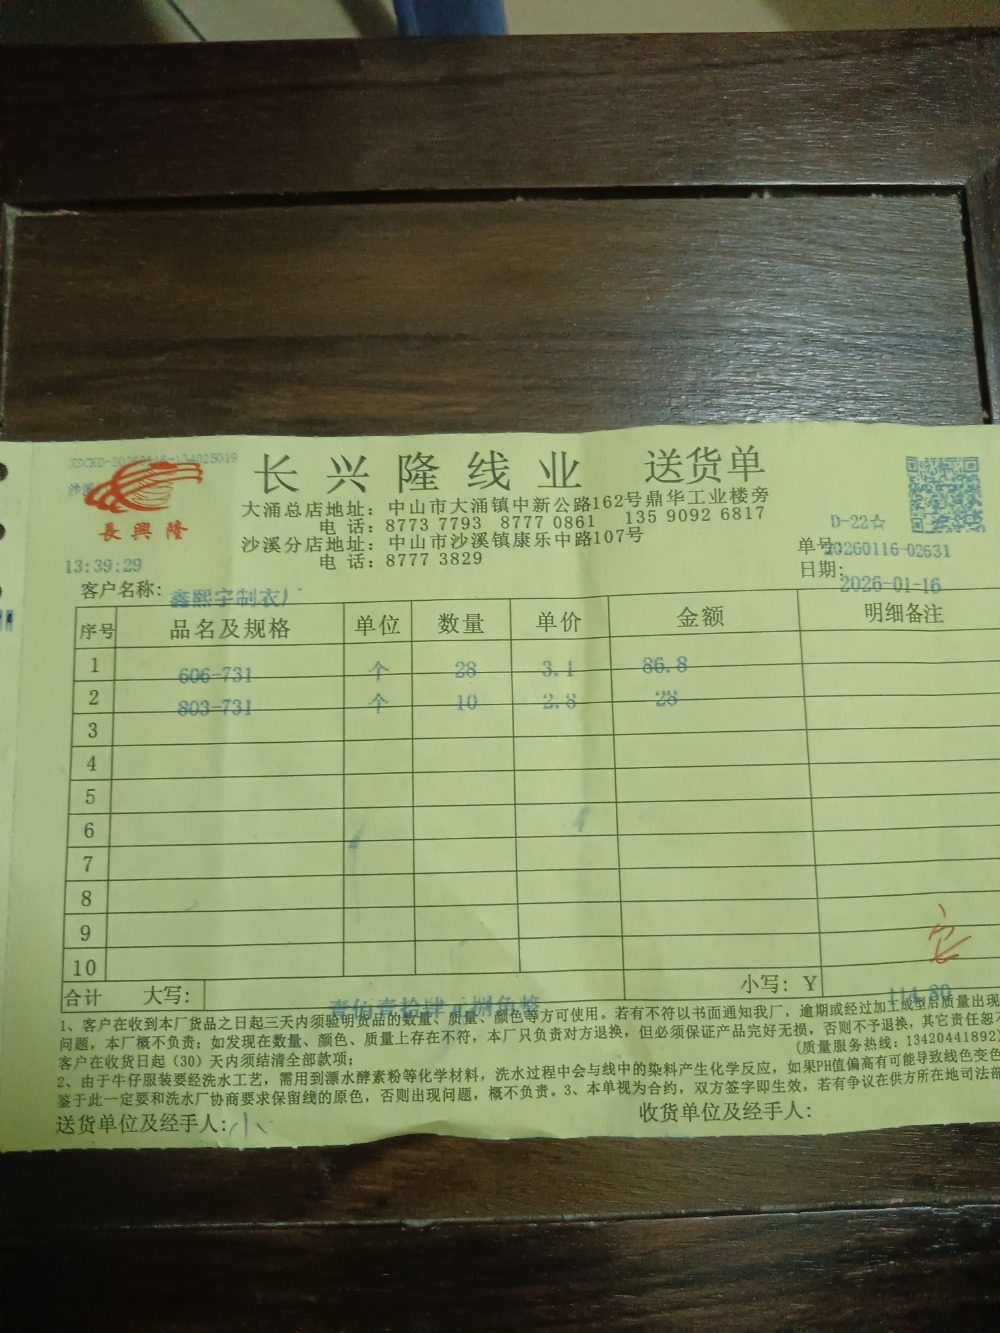 XSCKD-20260116-134025019
沙溪
長興隆
长兴隆线业 送货单
大涌总店地址：中山市大涌镇中新公路162号鼎华工业楼旁
电 话：8773 7793 8777 0861 135 9092 6817
沙溪分店地址：中山市沙溪镇康乐中路107号
电 话：8777 3829
D-22☆
单号:20260116-02631
日期:2026-01-16
13:39:29
客户名称:鑫熙宇制衣厂
序号 品名及规格 单位 数量 单价 金额 明细备注
1 606-731 个 28 3.1 86.8
2 803-731 个 10 2.8 28
3
4
5
6
7
8
9
10
合计 大写: 壹佰壹拾肆元捌角整 小写：Y 114.80
1、客户在收到本厂货品之日起三天内须验明货品的数量、质量、颜色等方可使用。若有不符以书面通知我厂，逾期或经过加工成型后质量出现
问题，本厂概不负责；如发现在数量、颜色、质量上存在不符，本厂只负责对方退换，但必须保证产品完好无损，否则不予退换，其它责任恕不
客户在收货日起（30）天内须结清全部款项； (质量服务热线：13420441892)
2、由于牛仔服装要经洗水工艺，需用到漂水酵素粉等化学材料，洗水过程中会与线中的染料产生化学反应，如果PH值偏高有可能导致线色变色
鉴于此一定要和洗水厂协商要求保留线的原色，否则出现问题，概不负责。3、本单视为合约，双方签字即生效，若有争议在供方所在地司法部
送货单位及经手人:小 收货单位及经手人: